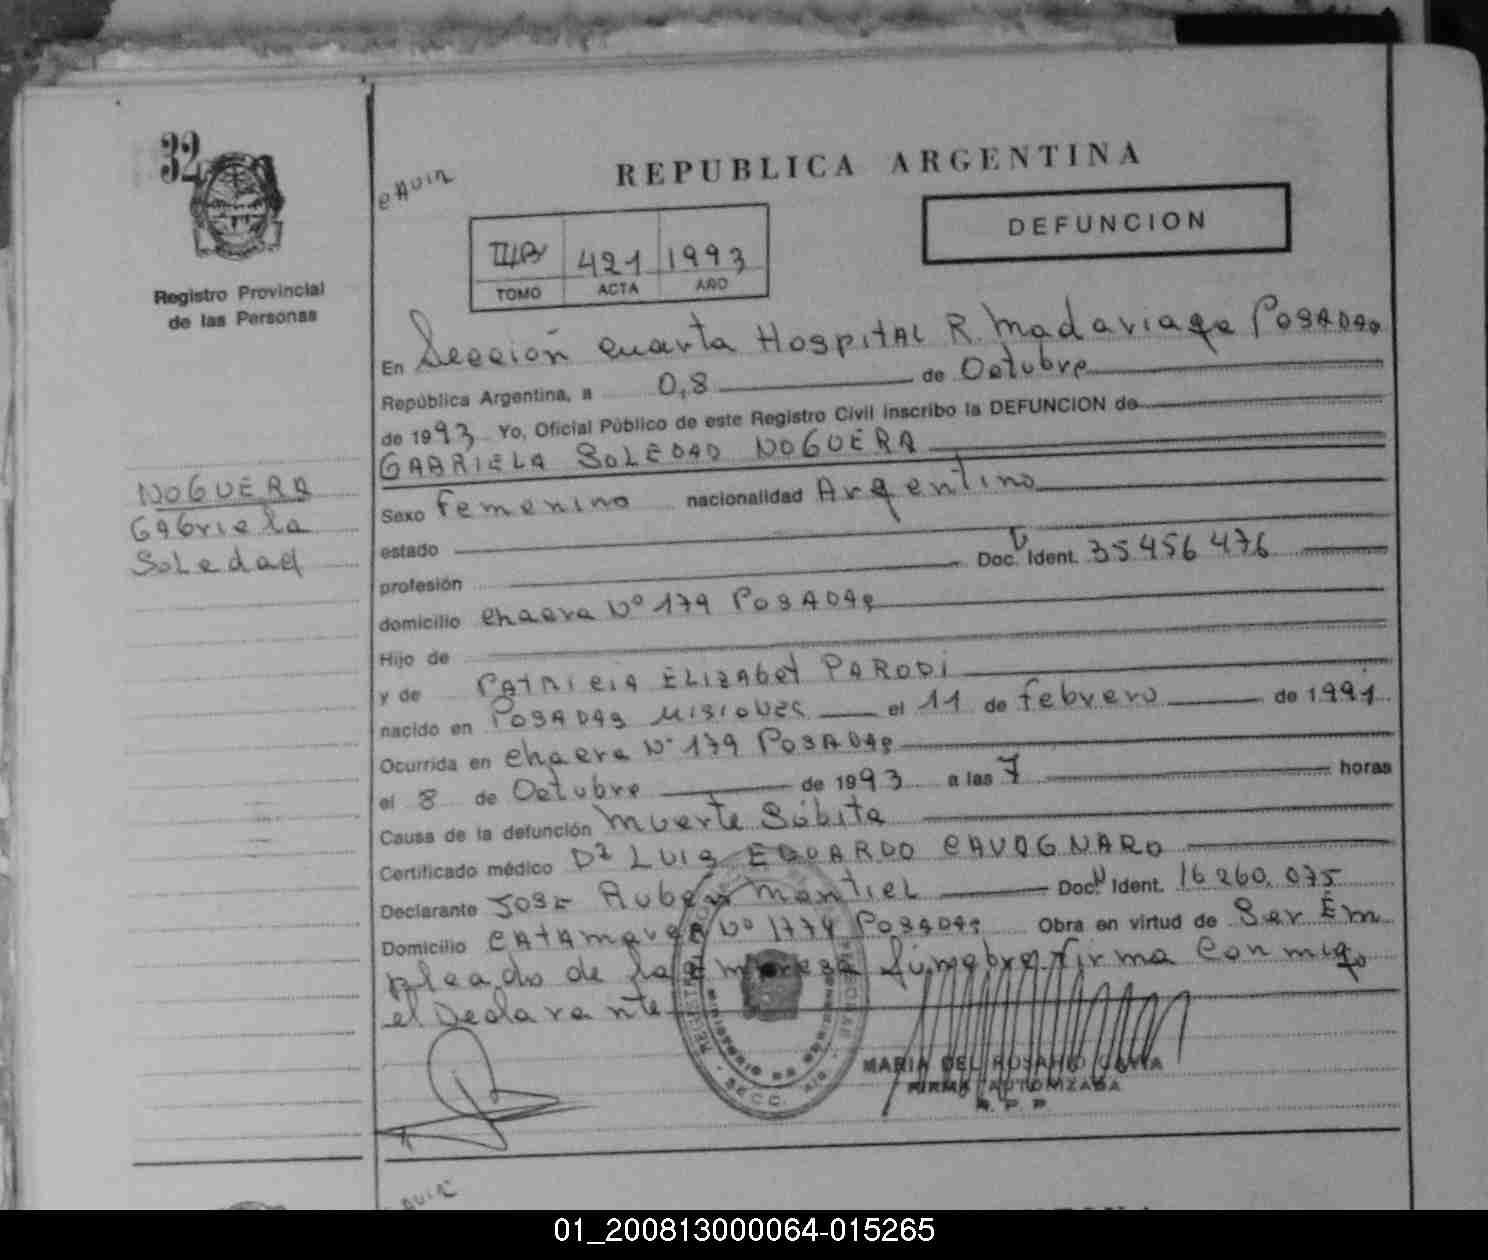 32
Registro Provincial
de las Personas
NOGUERA
Gabriela
Soledad
REPUBLICA ARGENTINA
DEFUNCION
421 1993
TOMO ACTA AÑO
En Sección Cuarta Hospital R. Madariaga Posadas
República Argentina, a 0,8 de Octubre
de 1993 Yo, Oficial Público de este Registro Civil inscribo la DEFUNCION de
GABRIELA SOLEDAD NOGUERA
Sexo femenino nacionalidad Argentino
estado
profesión Doc. Ident. 35456476
domicilio Chacra Nº 179 Posadas
Hijo de
y de Patricia Elizabet PARODI
nacido en Posadas Misiones el 11 de febrero de 1991
Ocurrida en Chacra Nº 179 Posadas
el 8 de Octubre de 1993 a las 7 horas
Causa de la defunción Muerte Súbita
Certificado médico Dr LUIS EDUARDO CAVAGNARO
Declarante José Ruben Montiel Doc. Ident. 16260.075
Domicilio Catamarca Nº 1774 Posadas Obra en virtud de Ser Em
pleado de la Empresa fúnebre firma Conmigo
el Declarante
MARIA DEL ROSARIO
FIRMA AUTORIZADA
R. P. P.
01_200813000064-015265